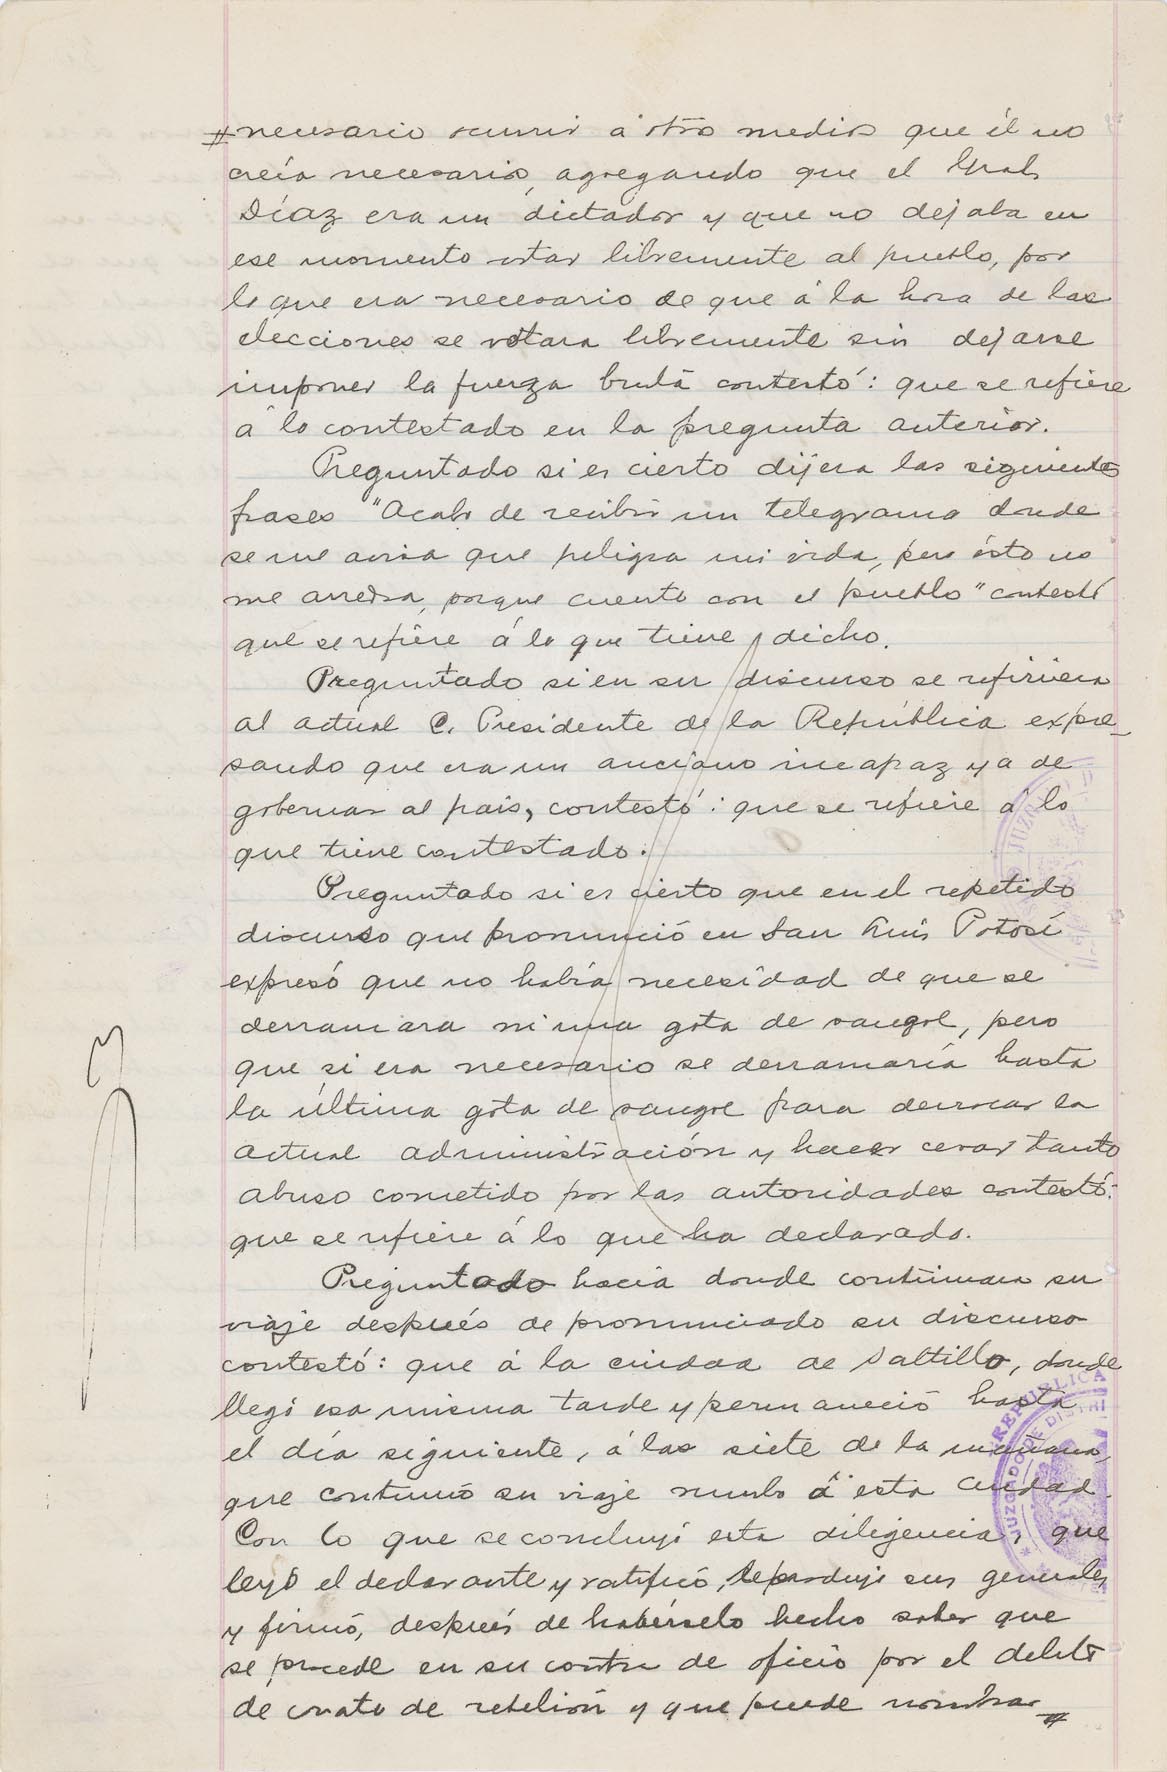 necesario ocurrir á otro medio que él no
creía necesario, agregando que el Gral.
Díaz era un dictador y que no dejaba en
ese momento votar libremente al pueblo, por
lo que era necesario de que á la hora de las
elecciones se votara libremente sin dejarse
imponer la fuerza bruta contestó: que se refiere
á lo contestado en la pregunta anterior.
Preguntado si es cierto dijera las siguientes
frases "Acabo de recibir un telegrama donde
se me avisa que peligra mi vida, pero ésto no
me arredra, porque cuento con el pueblo" contestó
que se refiere á lo que tiene dicho.
Preguntado si en su discurso se refiriera
al actual C. Presidente de la República expre-
sando que era un anciano incapaz ya de
gobernar al país, contestó: que se refiere á lo
que tiene contestado.
Preguntado si es cierto que en el repetido
discurso que pronunció en San Luis Potosí
expresó que no había necesidad de que se
derramara ni una gota de sangre, pero
que si era necesario se derramaría hasta
la última gota de sangre para derrocar la
actual administración y hacer cesar tanto
abuso cometido por las autoridades contestó:
que se refiere á lo que ha declarado.
Preguntado hacia donde continuara su
viaje después de pronunciado su discurso
contestó: que á la ciudad de Saltillo, donde
llegó esa misma tarde y permaneció hasta
el día siguiente, á las siete de la mañana,
que continuó su viaje rumbo á esta Ciudad.
Con lo que se concluyó esta diligencia, que
leyó el declarante y ratificó, reprodujo sus generales
y firmó, después de habérselo hecho saber que
se procede en su contra de oficio por el delito
de conato de rebelión y que puede nombrar
JUZGADO DE DISTRI
REPUBLICA